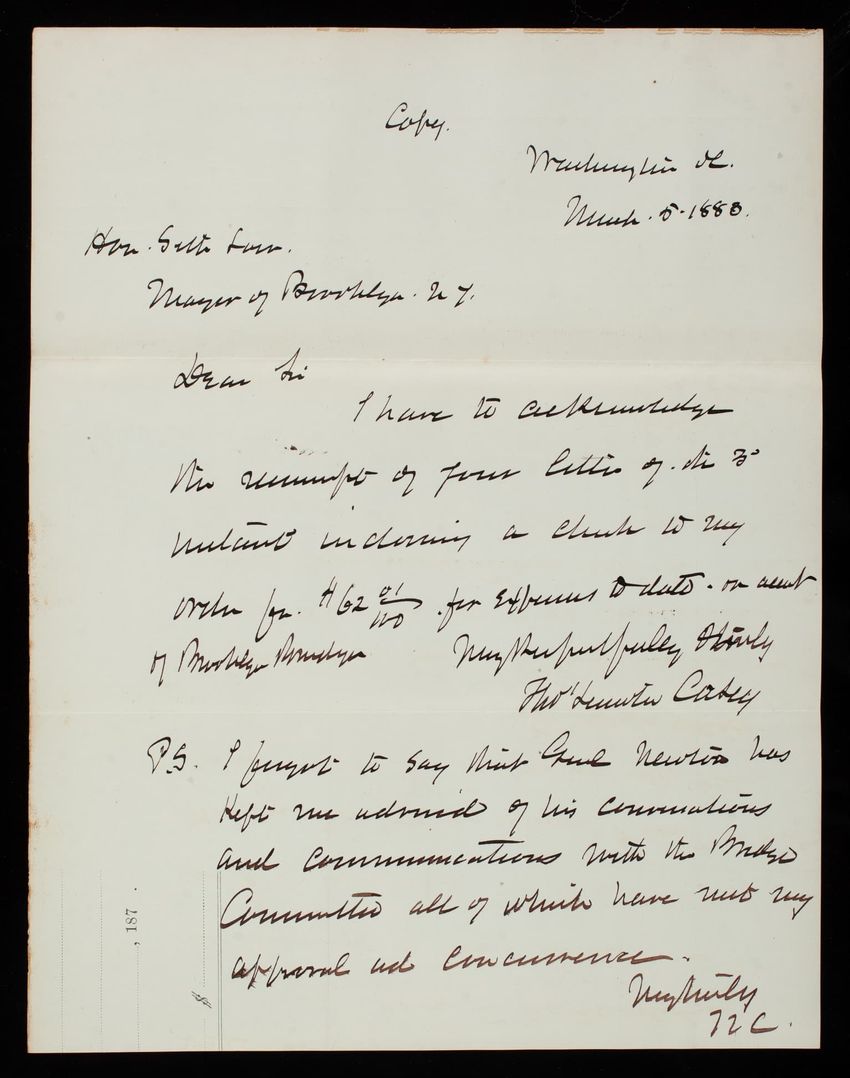 Copy.
Washington DC.
March. 5. 1883.
Hon. Seth Low.
Mayor of Brooklyn. N.Y.
Dear Sir
I have to acknowledge
the receipt of your letter of the 3d
instant inclosing a check to my
order for $62 01/100 for expenses to date - on acct
of Brooklyn Bridge
Very Respectfully
Thos Lincoln Casey
P.S. I forgot to say that Genl Newton has
kept me advised of his conversations
and communications with the Bridge
Committee all of which have met my
approval and concurrence.
Very truly
T L C.
, 187 .
$